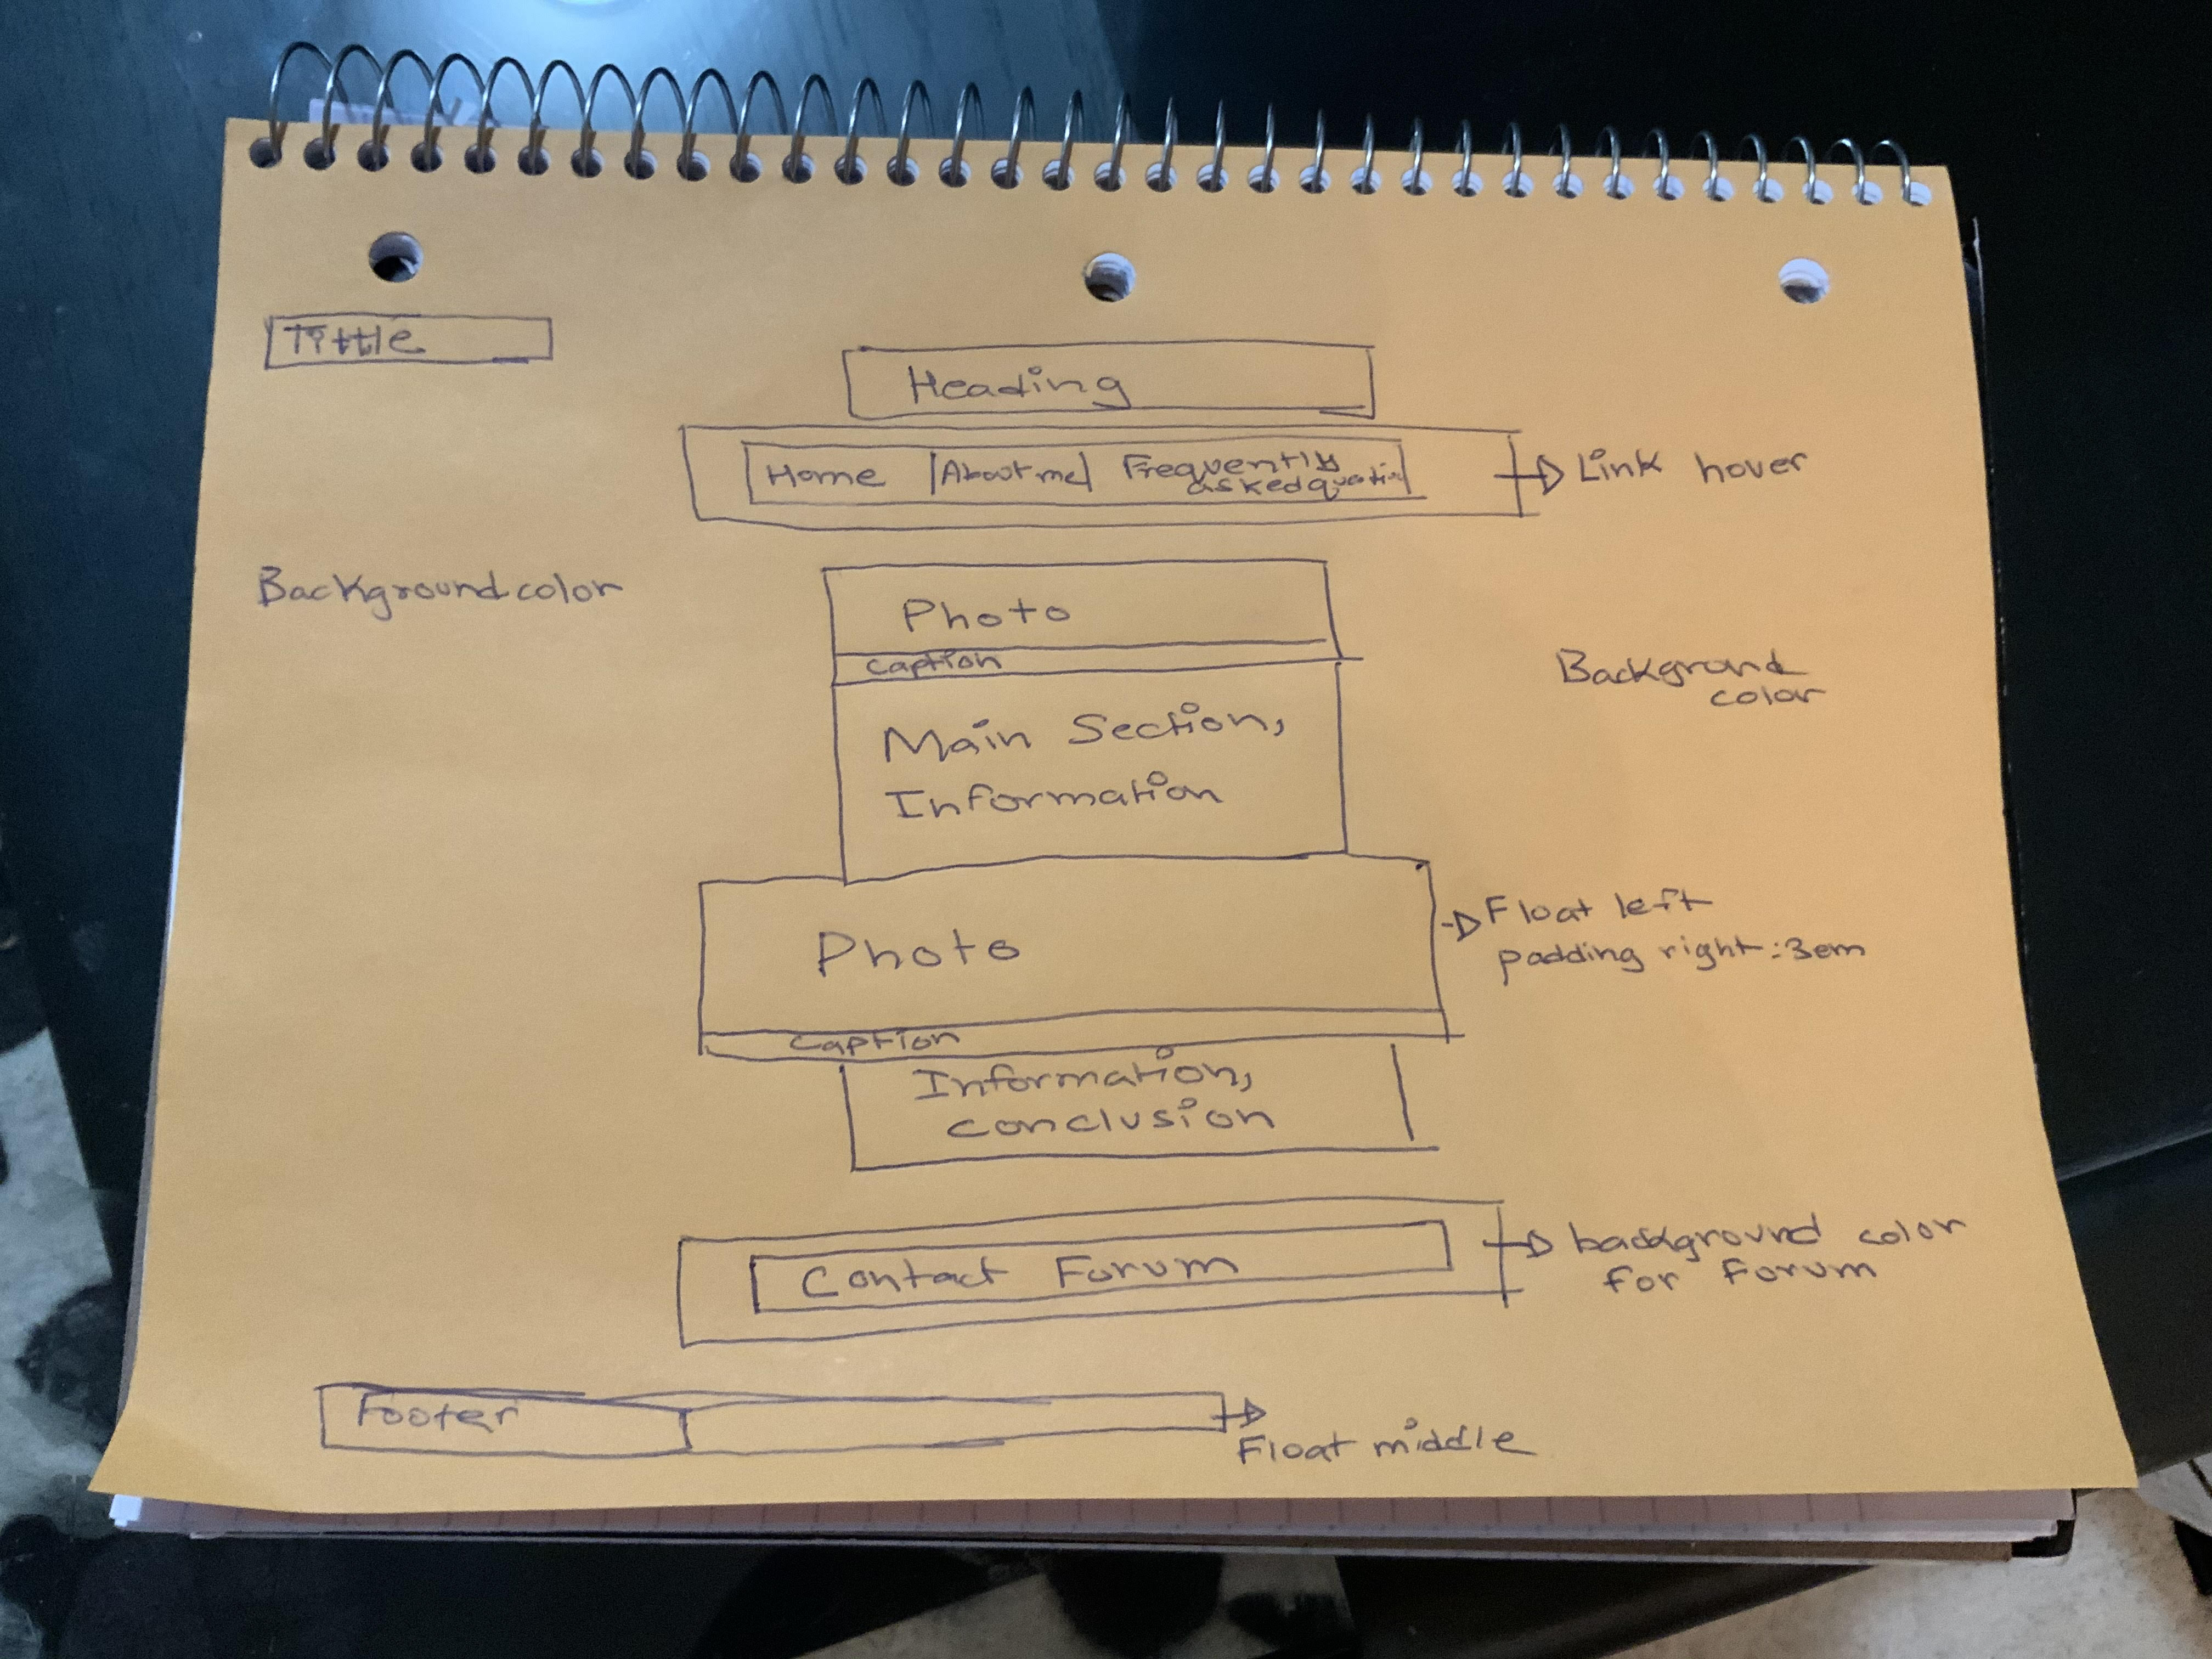 Tittle
Heading
Home | About me | Frequently
asked question
Link hover
Background color
Photo
caption
Background
color
Main Section,
Information
Photo
Float left
padding right:3em
caption
Information,
conclusion
Contact Forum
background color
for Forum
Footer
Float middle